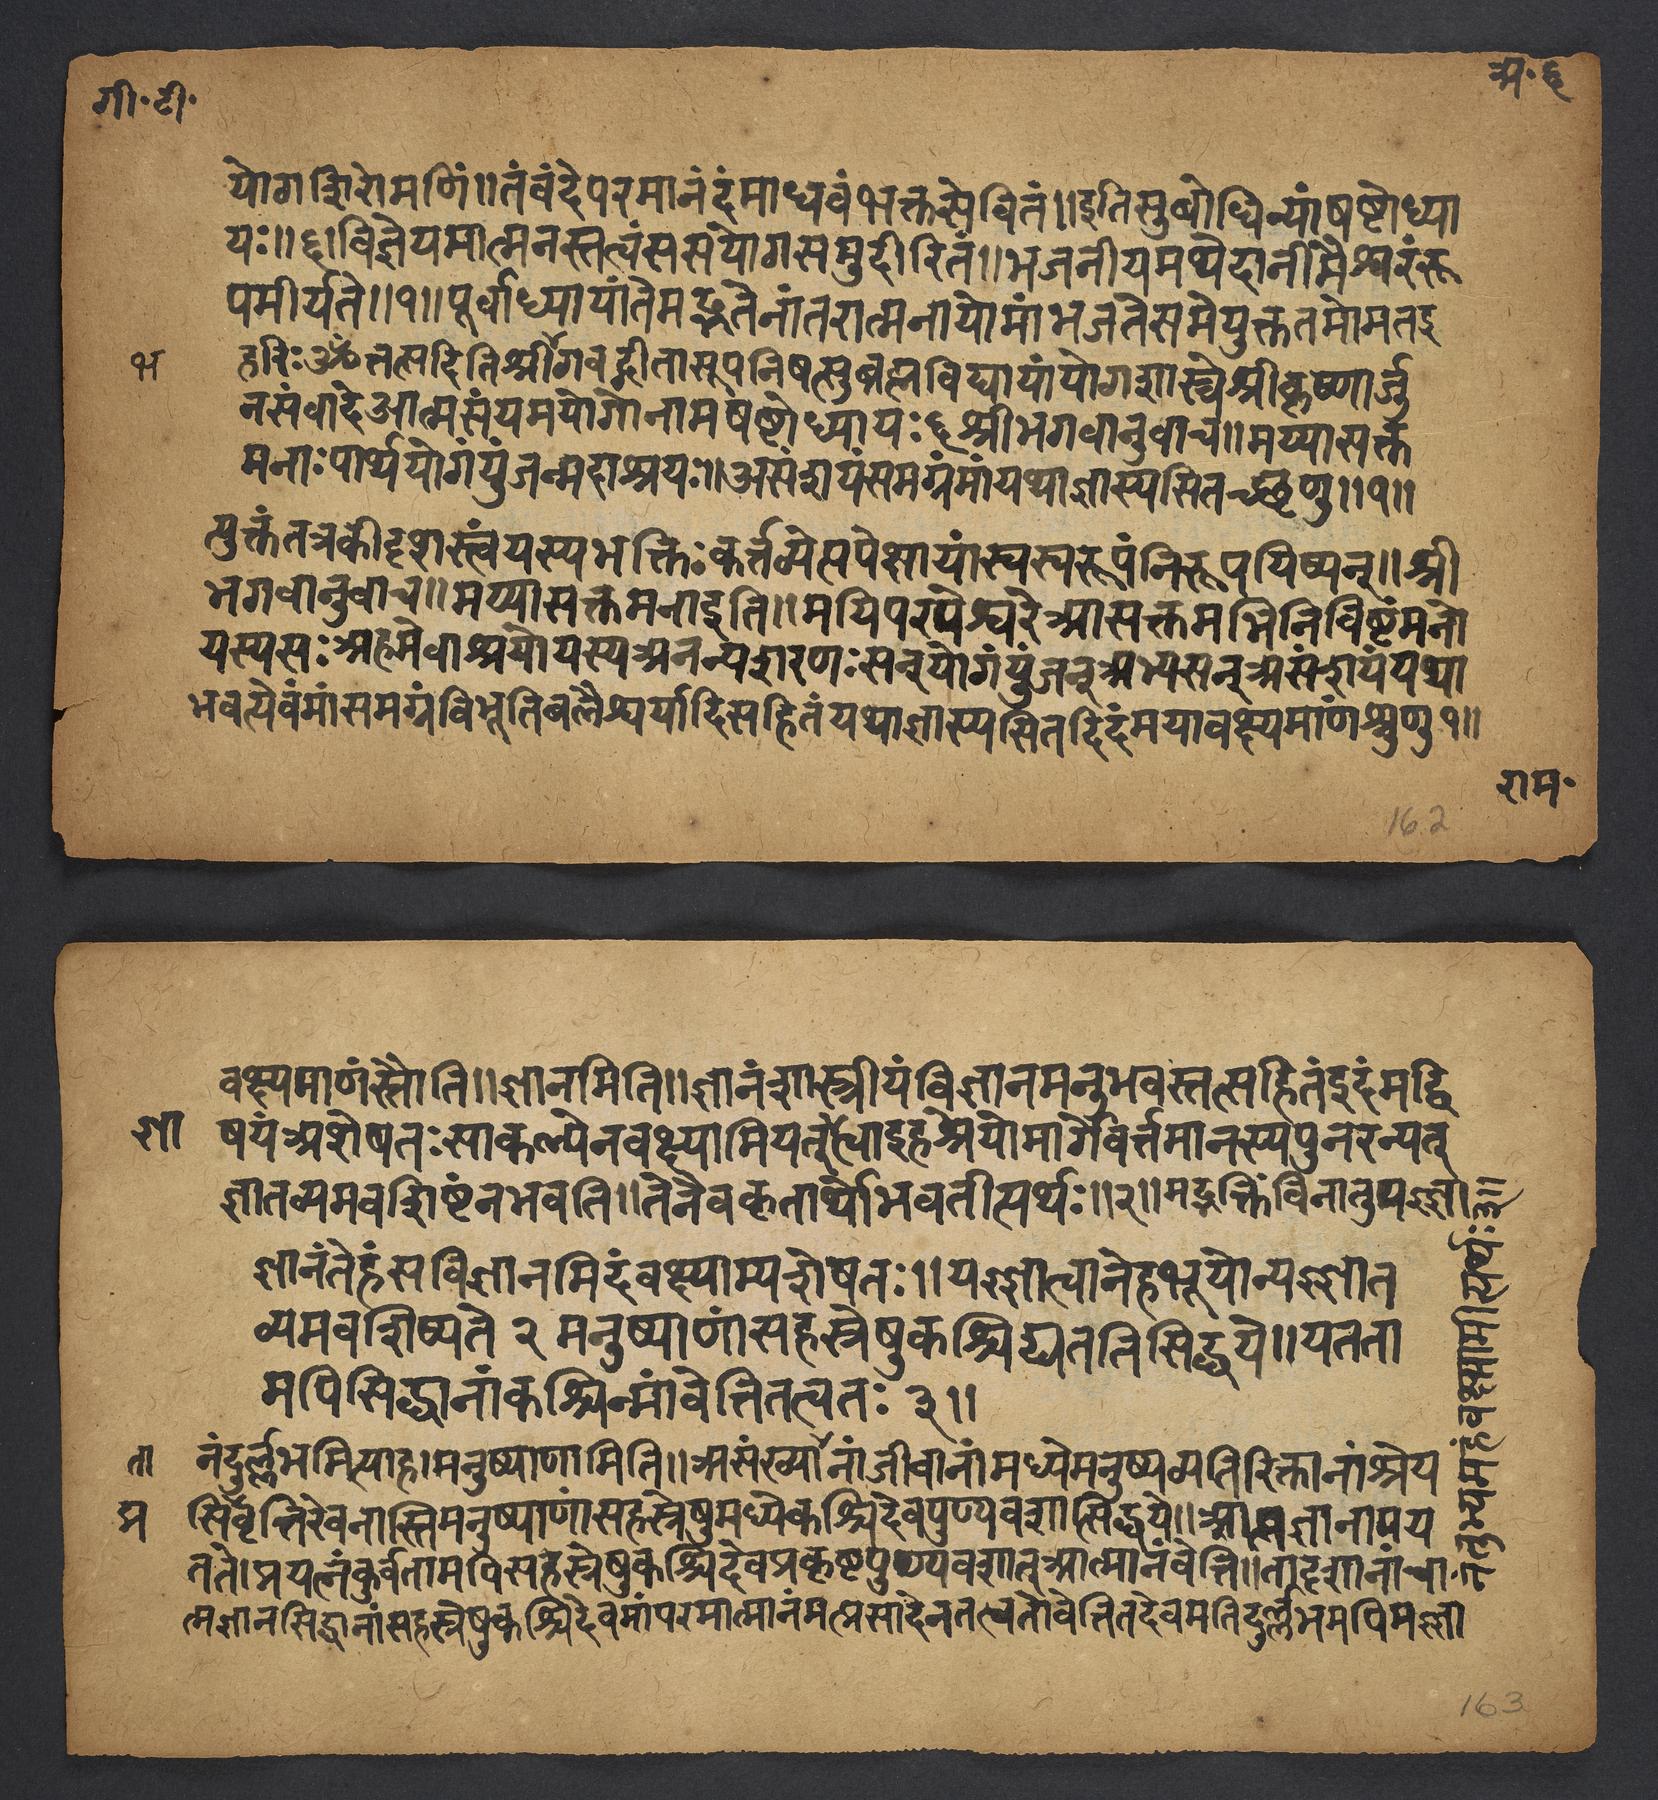 गी·टी·
अ·६
योगशिरोमणिं॥तंवंदेपरमानंदंमाधवंभक्तसेवितं॥इतिसुबोधिन्यांषष्टोध्या
यः॥६॥विज्ञेयमात्मनस्तत्वंससंयोगसमुदीरितं॥भजनीयमथेदानीमैश्वरंरू
पमीर्यते॥१॥पूर्वाध्यायांतेमद्गतेनांतरात्मनायोमांभजतेसमेयुक्ततमोमतइ
भ
हरिःॐतत्सदितिश्रीगवद्गीतासूपनिषत्सुब्रह्मविद्यायांयोगशास्त्रेश्रीकृष्णार्जु
नसंवादेआत्मसंयमयोगोनामषष्टोध्यायः६श्रीभगवानुवाच॥मय्यासक्त
मनाःपार्थयोगंयुंजन्मदाश्रयः॥असंशयंसमग्रंमांयथाज्ञास्यसितच्छृणु॥१॥
त्युक्तंतत्रकीदृशस्त्वंयस्यभक्तिःकर्त्तव्येत्यपेक्षायांस्वस्वरूपंनिरूपयिष्यन्॥श्री
भगवानुवाच॥मय्यासक्तमनाइति॥मयिपरमेश्वरेआसक्तमभिनिविष्टंमनो
यस्यसःअहमेवाश्रयोयस्यअनन्यशरणःसन्योगंयुंजन्अभ्यसन्असंशयंयथा
भवत्येवंमांसमग्रंविभूतिबलैश्वर्यादिसहितंयथाज्ञास्यसितदिदंमयावक्ष्यमाणंश्रुणु१॥
राम·
162
वक्ष्यमाणंस्तौति॥ज्ञानमिति॥ज्ञानंशास्त्रीयंविज्ञानमनुभवस्तत्सहितंइदंमद्वि
ज्ञा
षयंअशेषतःसाकल्येनवक्ष्यामियत्त्वाइहश्रेयोमार्गेवर्त्तमानस्यपुनरन्यत्
ज्ञातव्यमवशिष्टंनभवति॥तेनैवकृतार्थोभवतीत्यर्थः॥२॥मद्भक्तिंविनातुमज्ज्ञा
ज्ञानंतेहंसविज्ञानमिदंवक्ष्याम्यशेषतः॥यज्ज्ञात्वानेहभूयोन्यज्ज्ञात
व्यमवशिष्यते २ मनुष्याणांसहस्त्रेषुकश्चिद्यततिसिद्धये॥यतता
मपिसिद्धानांकश्चिन्मांवेत्तितत्वतः ३॥
ता
नंदुर्ल्लभमित्याह।मनुष्याणामिति॥असंख्यानांजीवानांमध्येमनुष्यव्यतिरिक्तानांश्रेय
प्र
सिवृत्तिरेवनास्तिमनुष्याणांसहस्त्रेषुमध्येकश्चिदेवपुण्यवशात्सिद्धये॥आत्मज्ञानायप्रय
तते।प्रयत्नंकुर्वतामपिसहस्त्रेषुकश्चिदेवप्रकृष्टपुण्यवशात्आत्मानंवेत्ति॥तादृशानांचा
त्मज्ञानसिद्धानांसहस्त्रेषुकश्चिदेवमांपरमात्मानंमत्प्रसादेनतत्वतोवेत्तितदेवमतिदुर्ल्लभमपिमज्ज्ञा
163